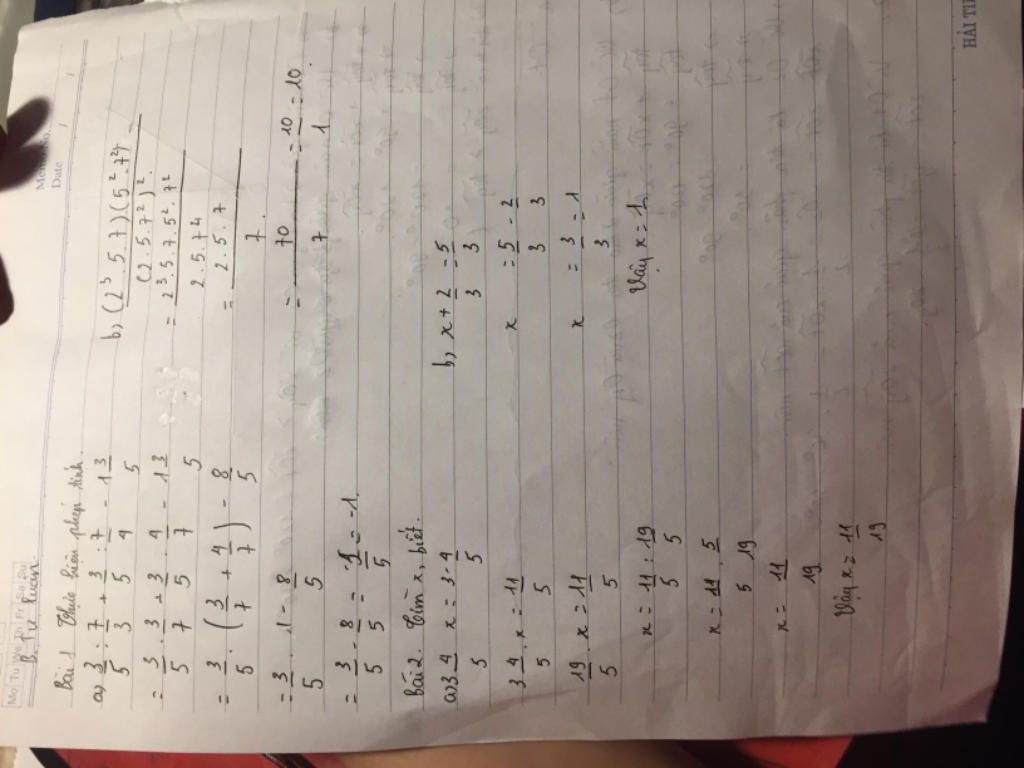 Mo Tu We Th Fr Sa Su
Memo No.
Date / /
B. Tự luận.
Bài 1 Thực hiện phép tính.
a, 3/5 : 7/3 + 3/5 : 7/4 - 1 3/5
= 3/5 . 3/7 + 3/5 . 4/7 - 1 3/5
= 3/5 . (3/7 + 4/7) - 8/5
= 3/5 . 1 - 8/5
= 3/5 - 8/5 = -5/5 = -1.
b, (2³.5.7)(5².7³) / (2.5.7²)².
= 2³.5.7.5².7² / 2.5.7⁴
= 2.5.7 / 7.
= 70 / 7 = 10/1 = 10.
Bài 2. Tìm x, biết.
a, 3 4/5 x = 3 - 4/5
3 4/5 . x = 11/5
19/5 . x = 11/5
x = 11/5 : 19/5
x = 11/5 . 5/19
x = 11/19
Vậy x = 11/19
b, x + 2/3 = 5/3
x = 5/3 - 2/3
x = 3/3 = 1
Vậy x = 1.
HẢI TI